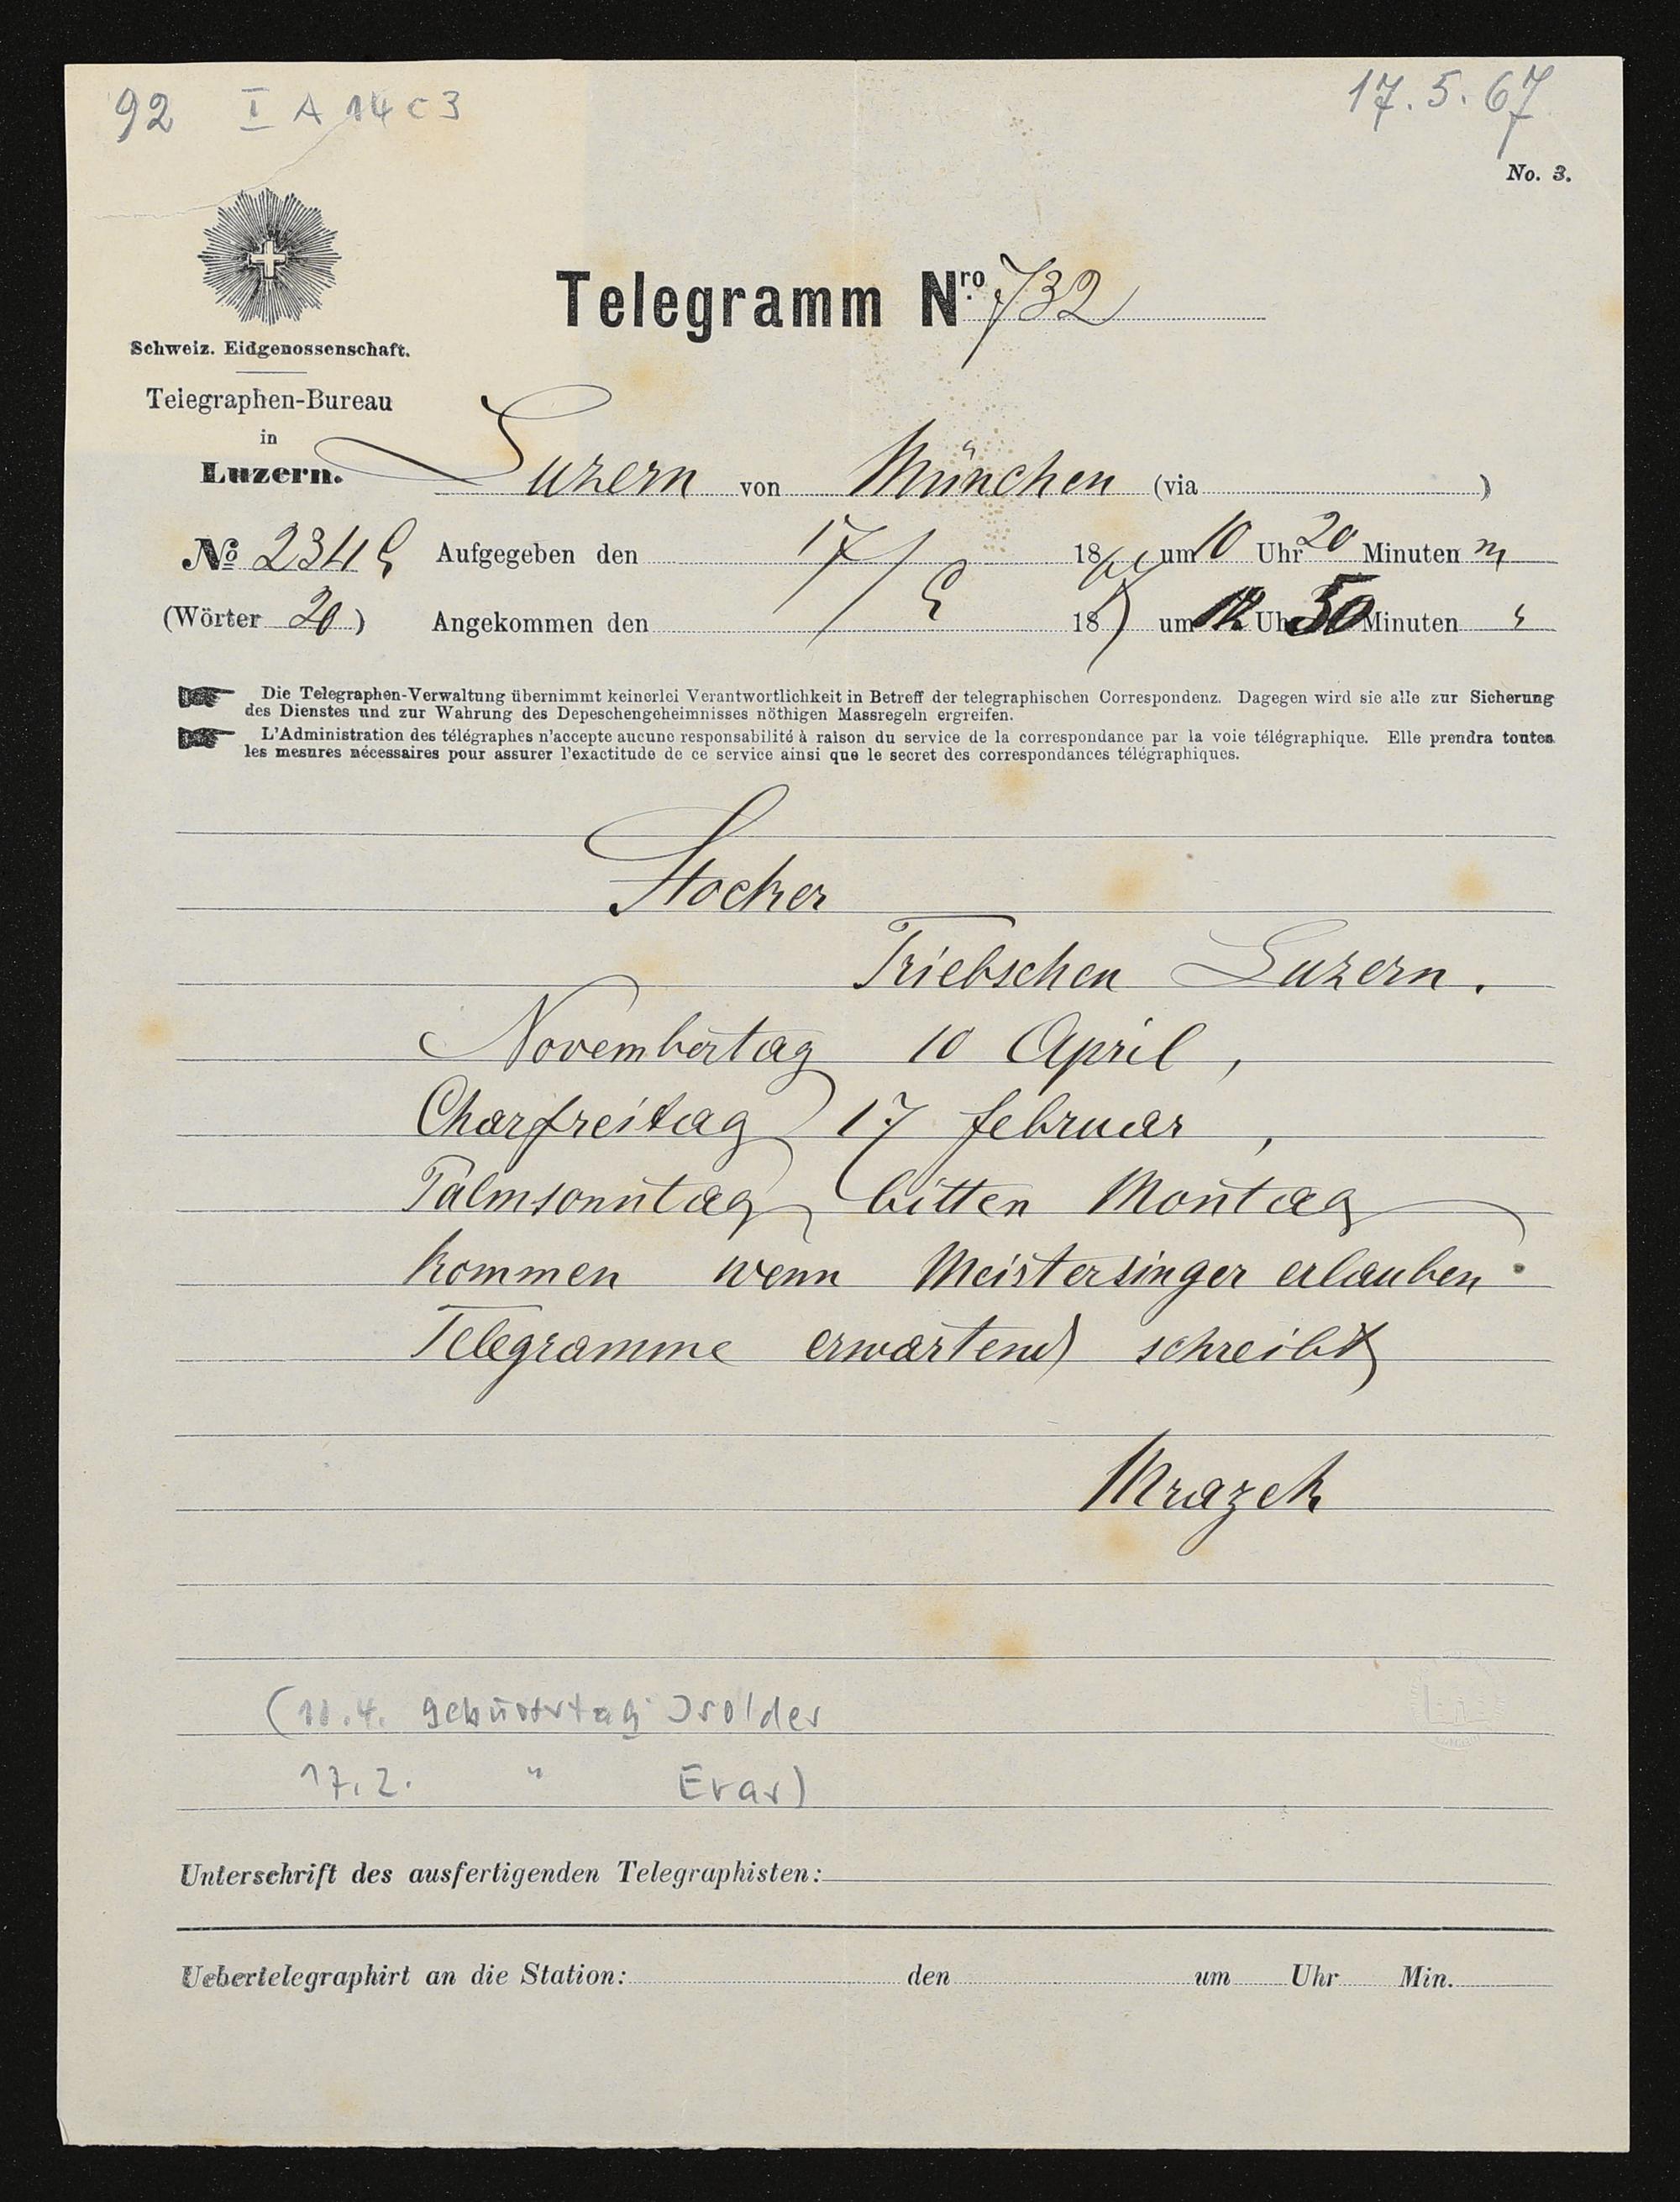 92 I A 14 c 3
17. 5. 67
No. 3.
Telegramm Nro. 732
Schweiz. Eidgenossenschaft.
Telegraphen-Bureau
in
Luzern.
Luzern von München (via )
No 2345 Aufgegeben den 17/5 1867 um 10 Uhr 20 Minuten m
(Wörter 20) Angekommen den 18 um 12 Uhr 50 Minuten
Die Telegraphen-Verwaltung übernimmt keinerlei Verantwortlichkeit in Betreff der telegraphischen Correspondenz. Dagegen wird sie alle zur Sicherung
des Dienstes und zur Wahrung des Depeschengeheimnisses nöthigen Massregeln ergreifen.
L'Administration des télégraphes n'accepte aucune responsabilité à raison du service de la correspondance par la voie télégraphique. Elle prendra toutes
les mesures nécessaires pour assurer l'exactitude de ce service ainsi que le secret des correspondances télégraphiques.
Stocker
Triebschen Luzern.
Novembertag 10 April,
Charfreitag 17 februar,
Palmsonntag bitten Montag
kommen wenn Meistersinger erlauben.
Telegramme erwartend schreibt
Mrazek
(10.4. Geburtstag Isoldes
17.2. " Evas)
Unterschrift des ausfertigenden Telegraphisten:
Uebertelegraphirt an die Station: den um Uhr Min.